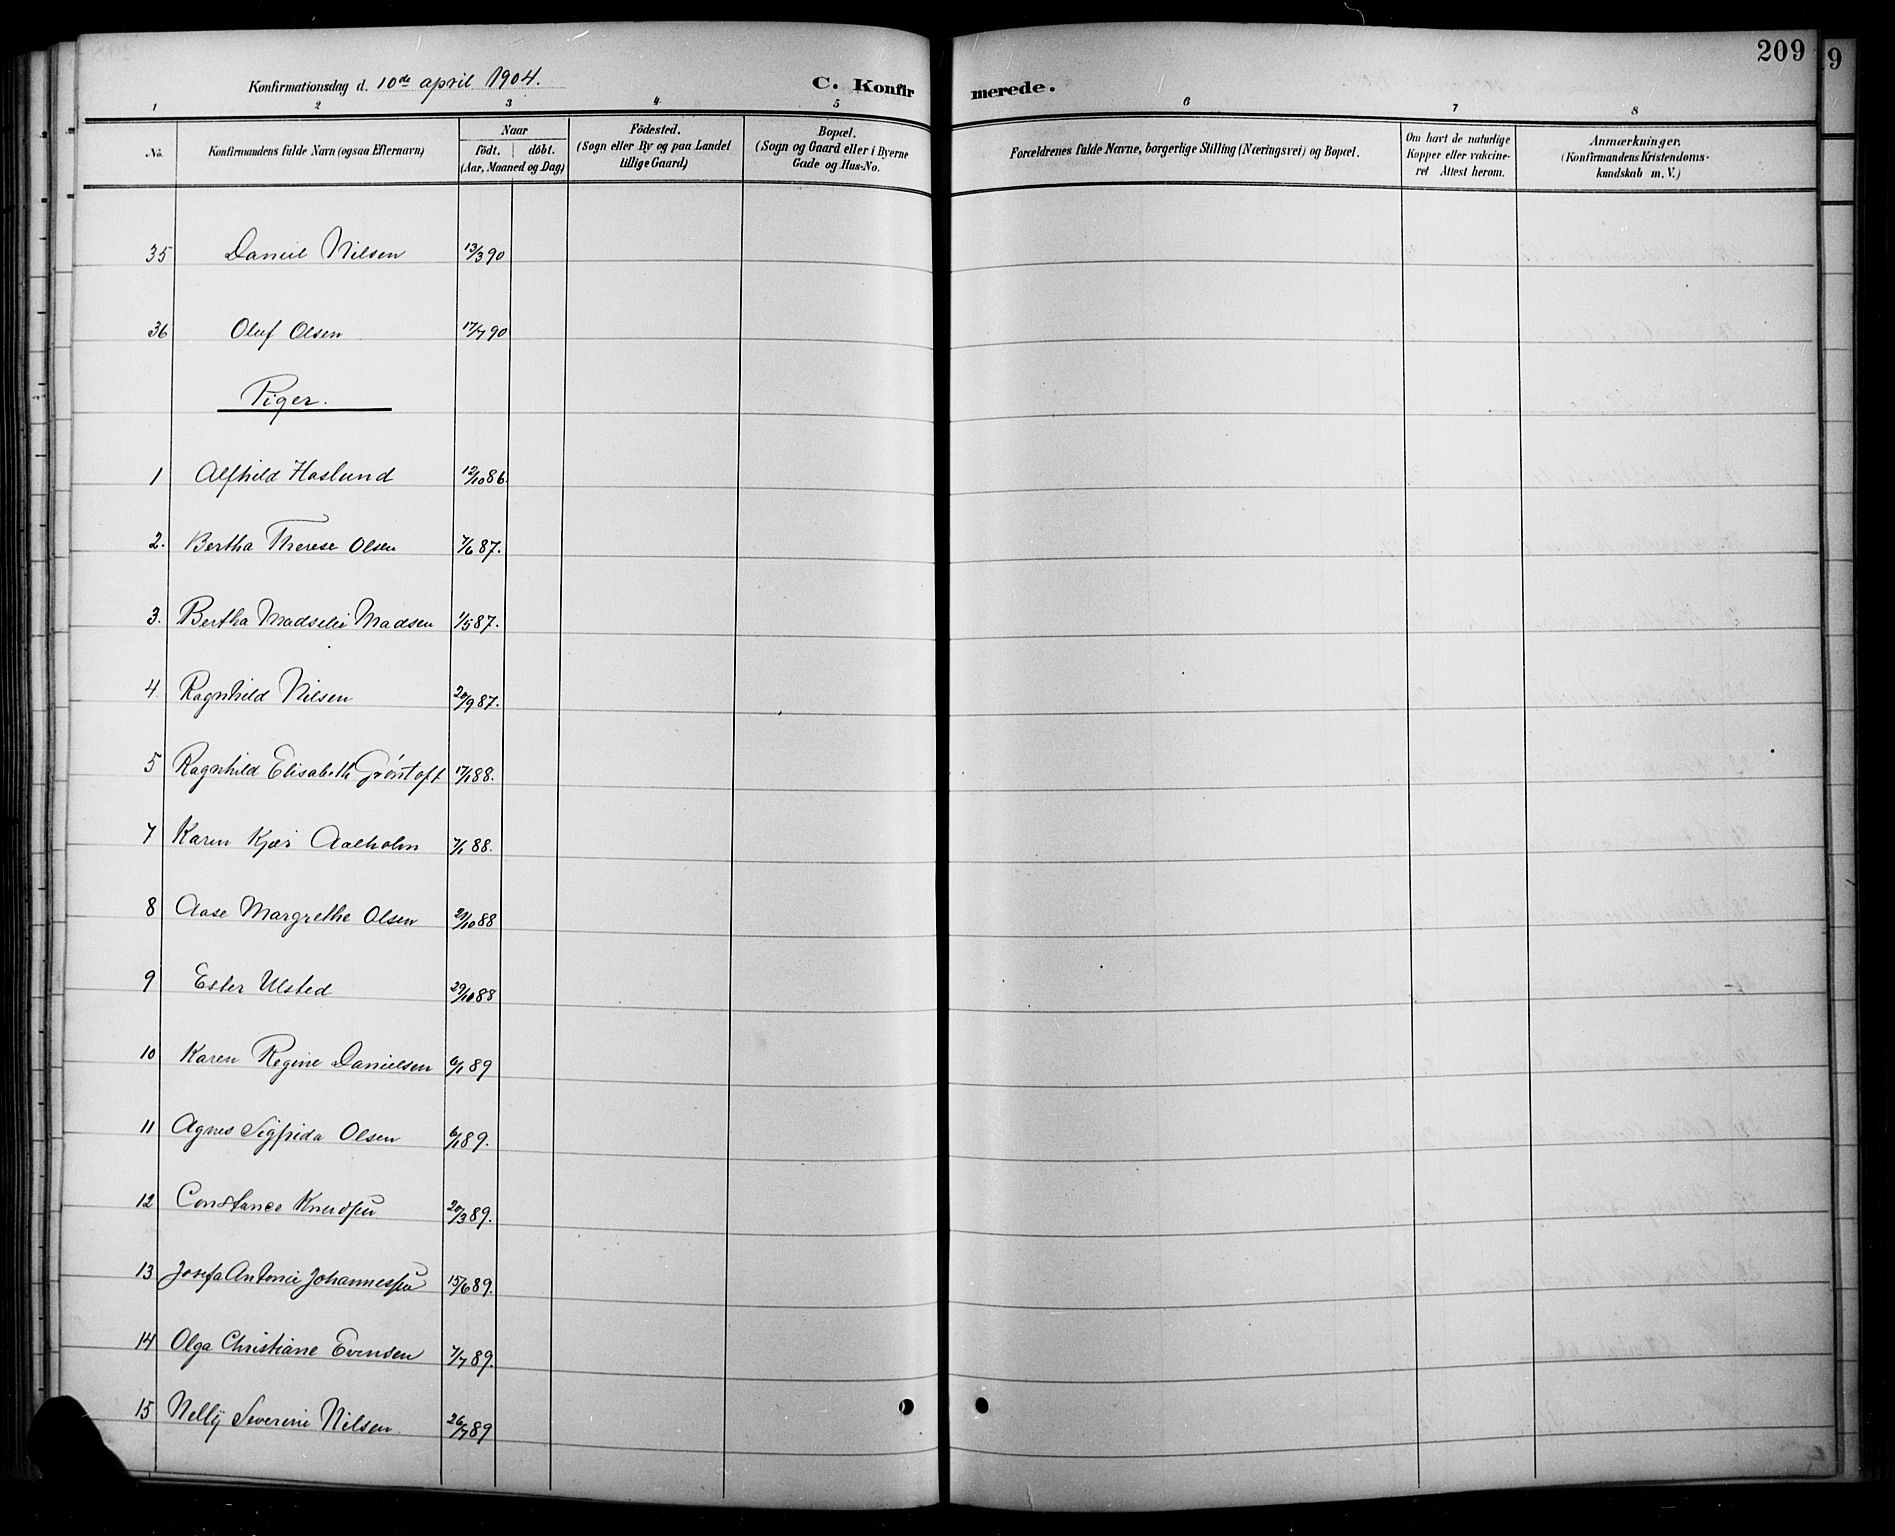 209
9
Konfirmationsdag d. 10de april 1904.
C. Konfirmerede.
1 2 3 4 5 6 7 8
No.
Konfirmandens fulde Navn (ogsaa Efternavn)
Naar
födt. döbt.
(Aar, Maaned og Dag)
Födested.
(Sogn eller By og paa Landet
tillige Gaard)
Bopæl.
(Sogn og Gaard eller i Byerne
Gade og Hus-No.
Forældrenes fulde Navne, borgerlige Stilling (Næringsvei) og Bopæl.
Om havt de naturlige
Kopper eller vakcine-
ret Attest herom.
Anmærkninger,
(Konfirmandens Kristendoms-
kundskab m. V.)
35 Daniel Nilsen 13/3 90
36 Oluf Olsen 17/7 90
Piger.
1 Alfhild Haslund 12/10 86.
2. Bertha Therese Olsen 7/6 87.
3. Bertha Madselie Madsen 1/5 87.
4. Ragnhild Nilsen 20/9 87.
5 Ragnhild Elisabeth Grøstoft 17/1 88.
7 Karen Kjær Aalholm 7/1 88.
8 Aase Margrethe Olsen /10 88
9 Ester Ulsted 29/10 88
10 Karen Regine Danielsen 6/1 89
11 Agnes Sigfrida Olsen 6/1 89.
12 Constance Knudsen 20/3 89.
13 Josefa Antonie Johannessen 15/6 89.
14 Olga Christiane Evensen 7/7 89.
15 Nelly Severine Nilsen 26/7 89